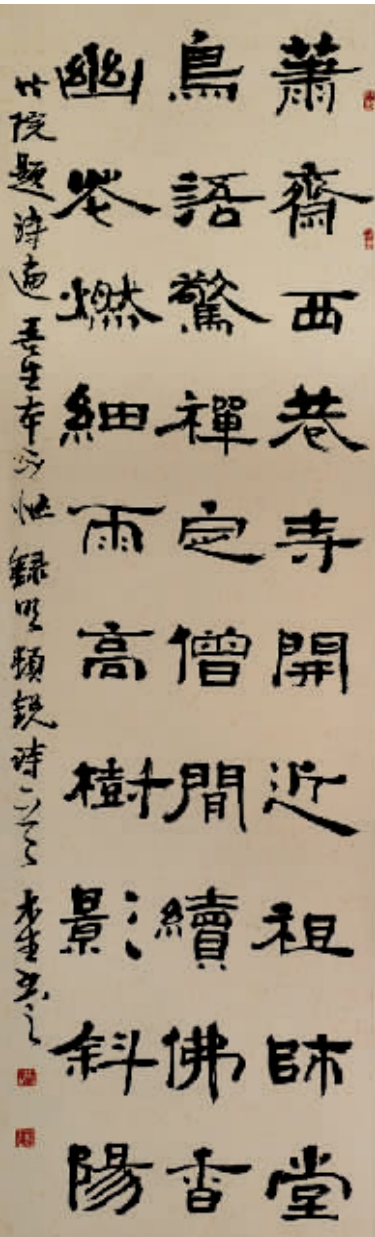 蕭齋西巷寺開近祖師堂
鳥語驚禪定僧閒續佛香
幽花燃細雨高樹影斜陽
竹院題詩遍吾生本不忙錄明頓銳詩一首 書之